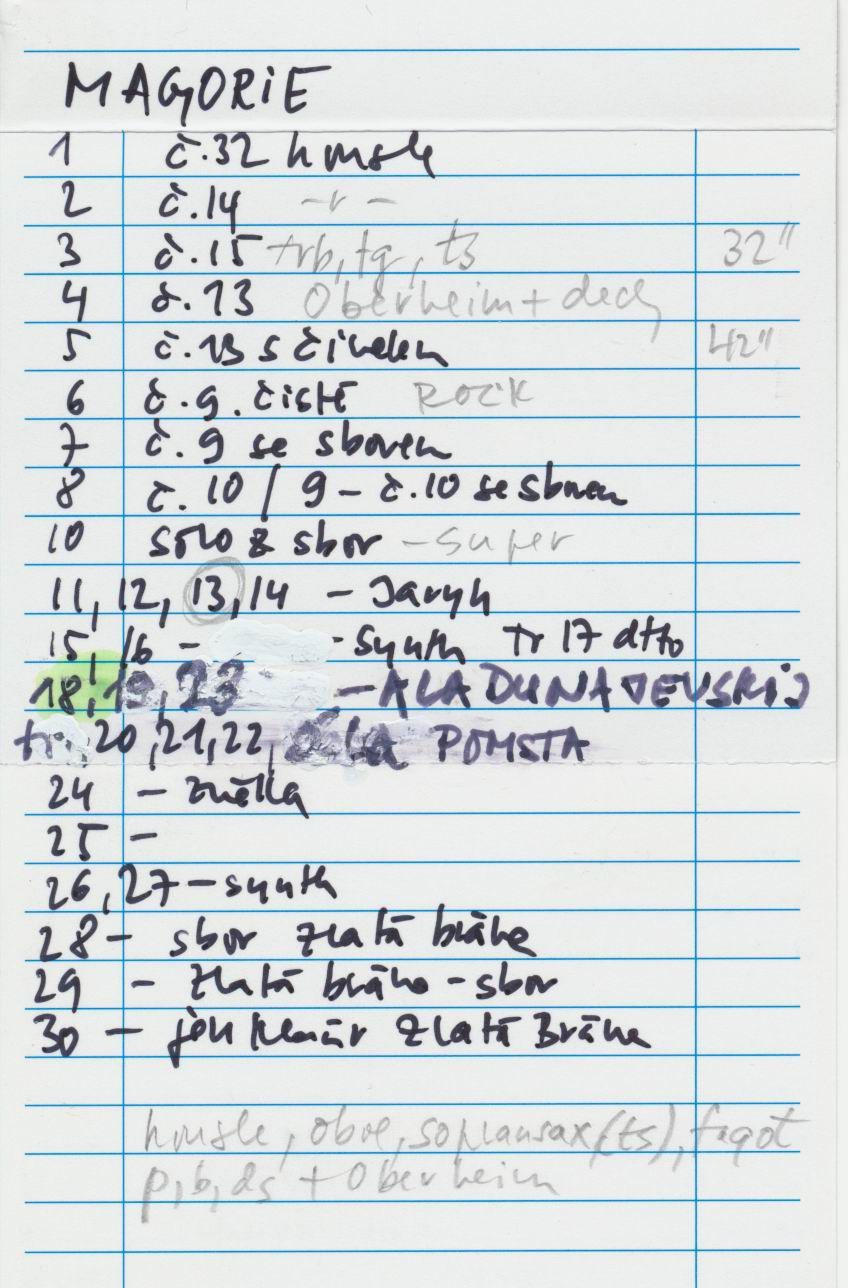 MAGORIE
1 č.32 housle
2 č.14 -r-
3 č.15 trb, fg, ts 32"
4 č.13 Oberheim + dech
5 č.13 s činelem 42"
6 č.9. čistě ROCK
7 č.9 se sborem
8 č.10 / 9 - č.10 se sborem
10 sólo z sbor - super
11, 12, 13, 14 - Jaryh
15, 16 - - synth tr 17 dtto
18, 19, 23 - ALA DUNAJEVSKIJ
tr. 20, 21, 22, POMSTA
24 - znělka
25 -
26, 27 - synth
28 - sbor zlatá bráne
29 - zlatá brána - sbor
30 - jen klavír Zlatá Brána
housle, oboe, sopransax (ts), fagot
p, b, ds + Oberheim